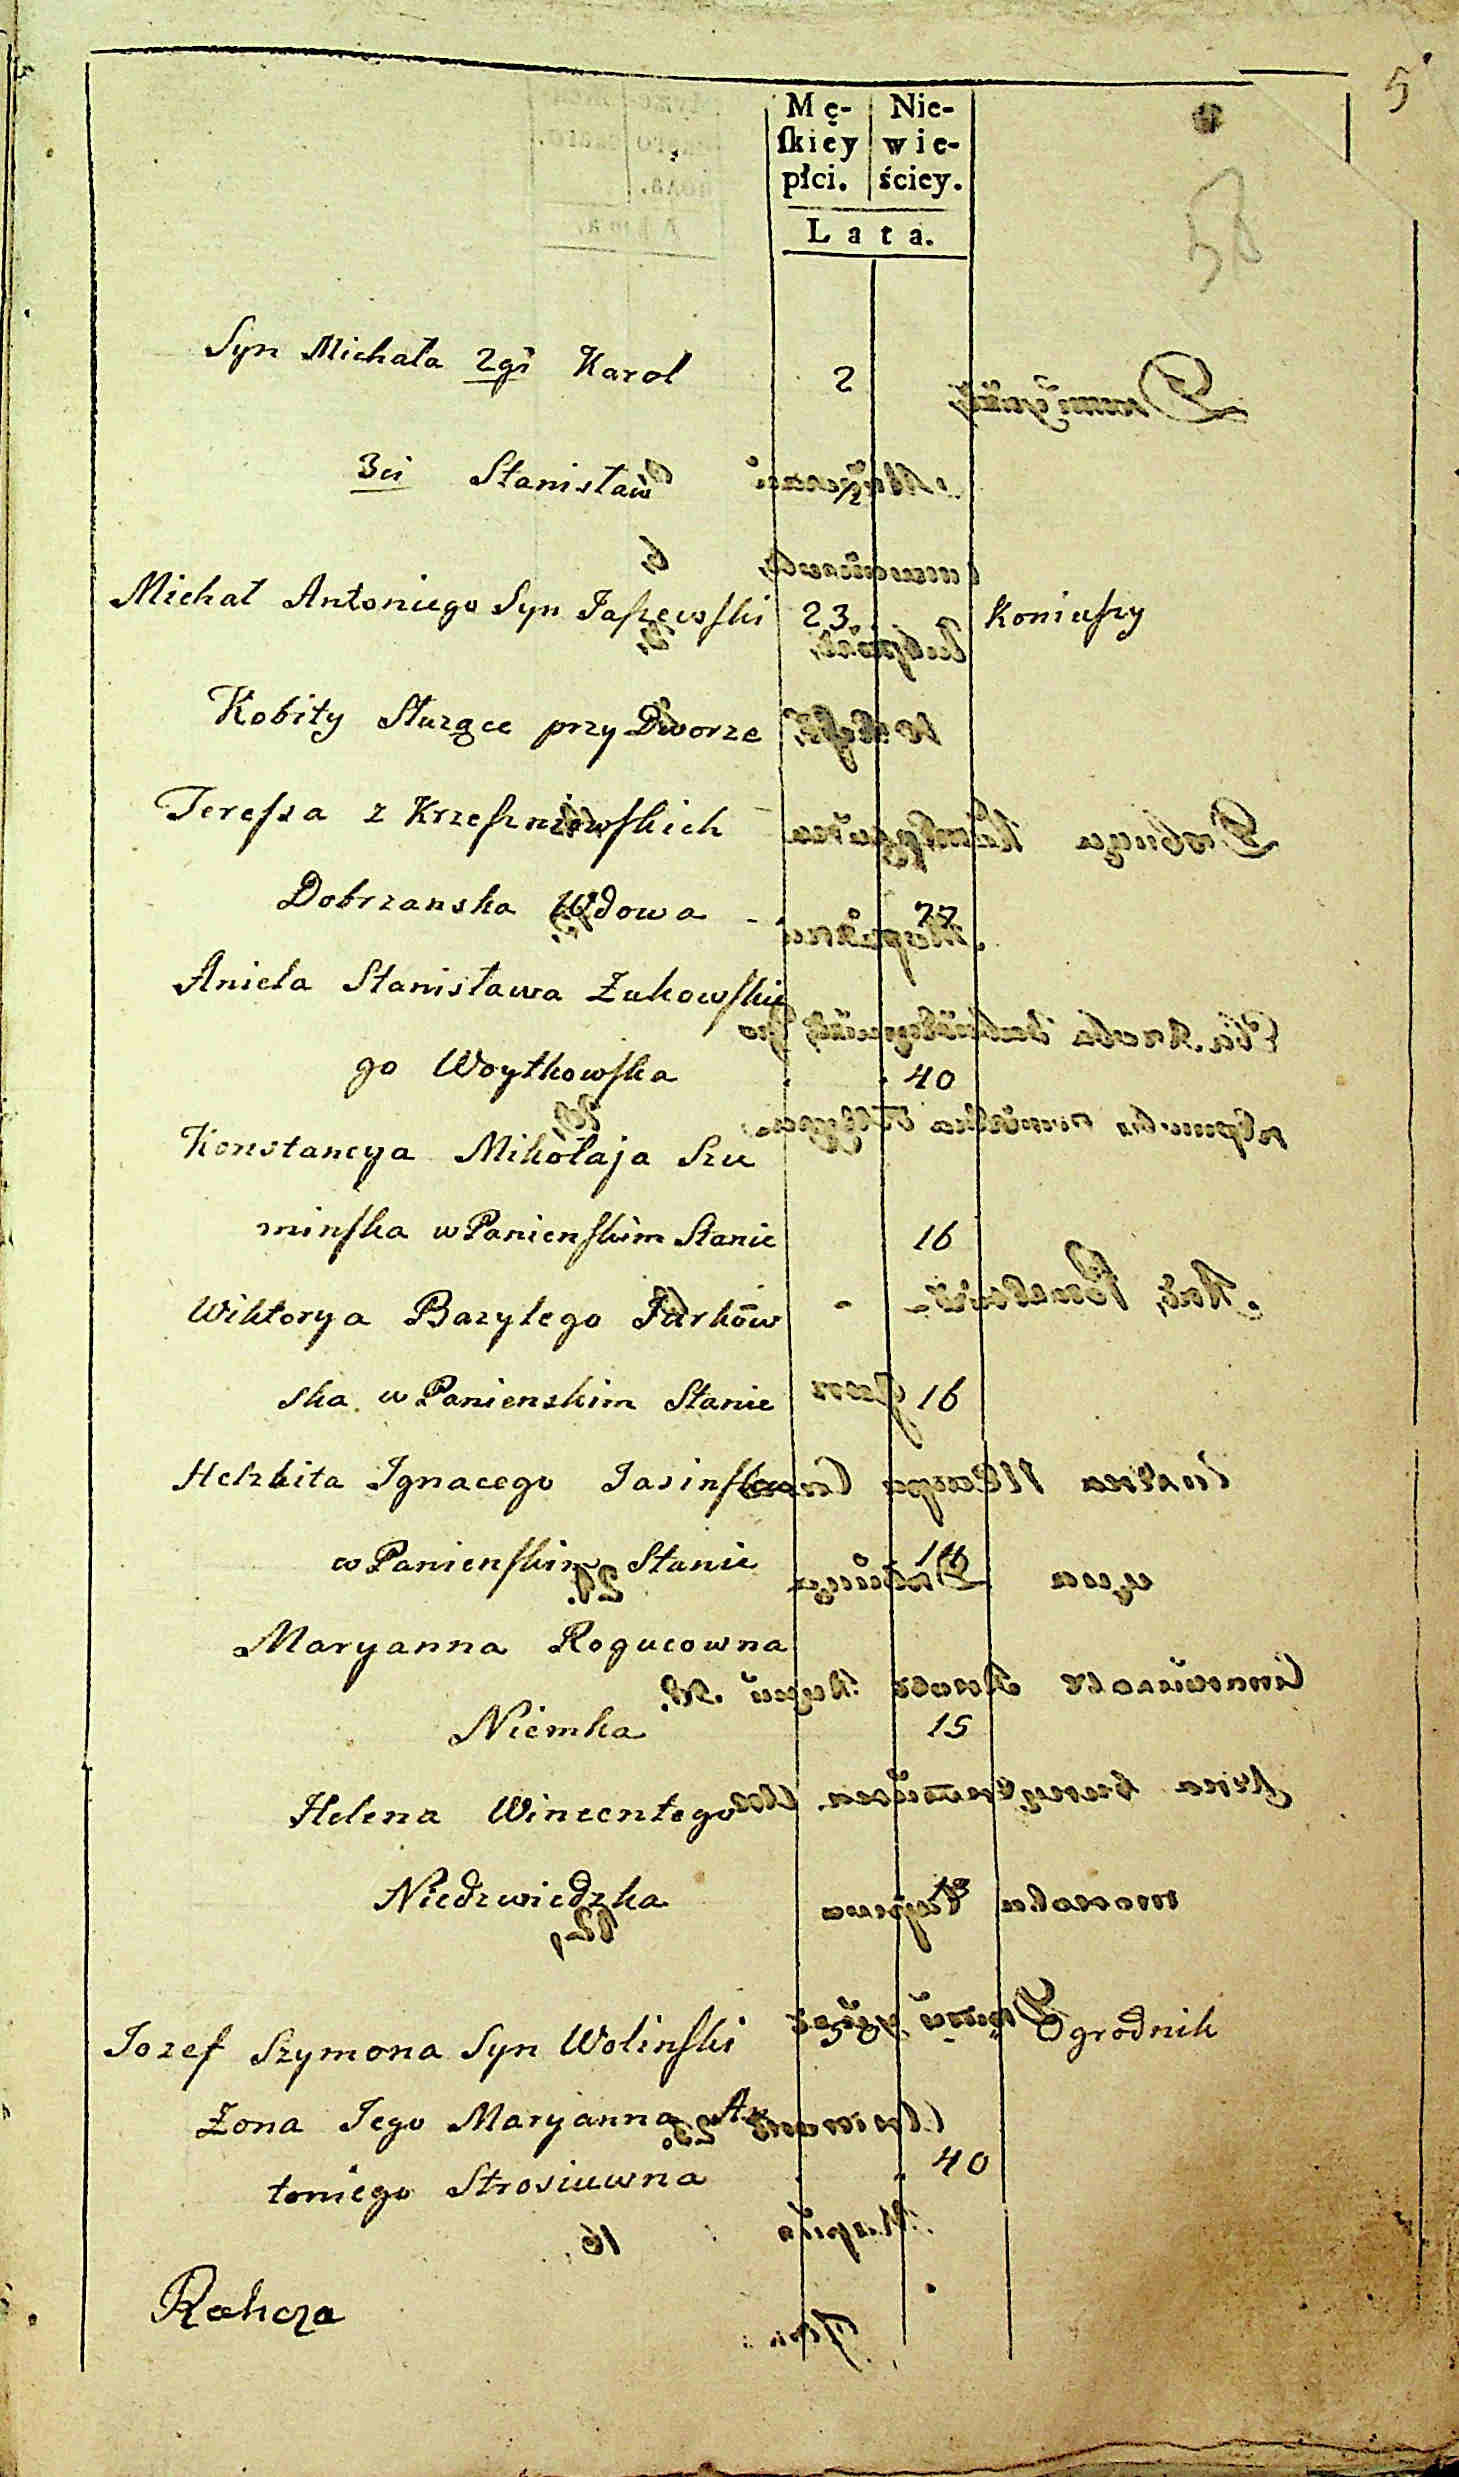 5
Mę- Nie-
ſkiey wie-
płci. ściey.
Lata.
58
Syn Michała 2gi Karol 2
3ci Stanisław
Michał Antoniego Syn Jaſzewſki 23. Koniuſzy
Kobity Służące przy Dworze
Tereſsa z Krzeſzniowſkich
Dobrzanska Wdowa - 77
Aniela Stanisława Żukowſkie
go Woytkowſka 40
Konstancya Mikołaja Szu
minſka w Panienſkim Stanie 16
Wiktorya Bazylego Jurkow
ska w Panienskim Stanie 16
Helzbita Ignacego Jasinſka
w Panienſkim Stanie
Maryanna Rogucowna
Niemka 15
Helena Wincentego
Niedzwiedzka 13
Jozef Szymona Syn Wolinſki Ogrodnik
Żona Jego Maryanna An
toniego Strosiuwna 40
Rahcza